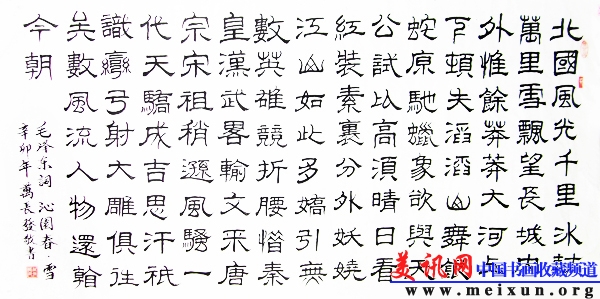 北國風光千里冰封
萬里雪飄望長城内
外惟餘莽莽大河上
下頓失滔滔山舞銀
蛇原馳蠟象欲與天
公試比高須晴日看
紅裝素裹分外妖嬈
江山如此多嬌引無
數英雄競折腰惜秦
皇漢武畧輸文采唐
宗宋祖稍遜風騷一
代天驕成吉思汗祇
識彎弓射大雕俱往
矣數風流人物還看
今朝
毛泽东词 沁園春·雪
辛卯年萬長發敬書
美讯网 中国书画收藏频道
www.meixun.org